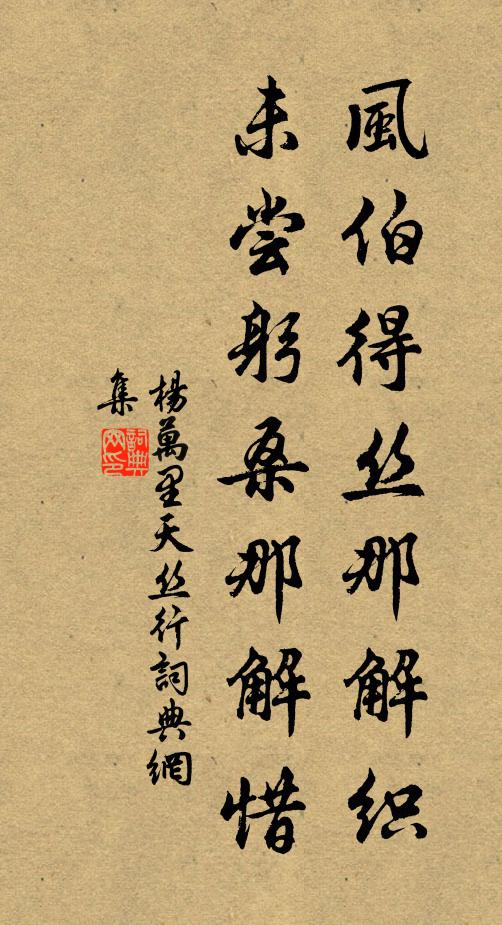 風伯得丝那解织
未尝躬桑那解惜
楊萬里天丝行詞典網
集
詞典網印